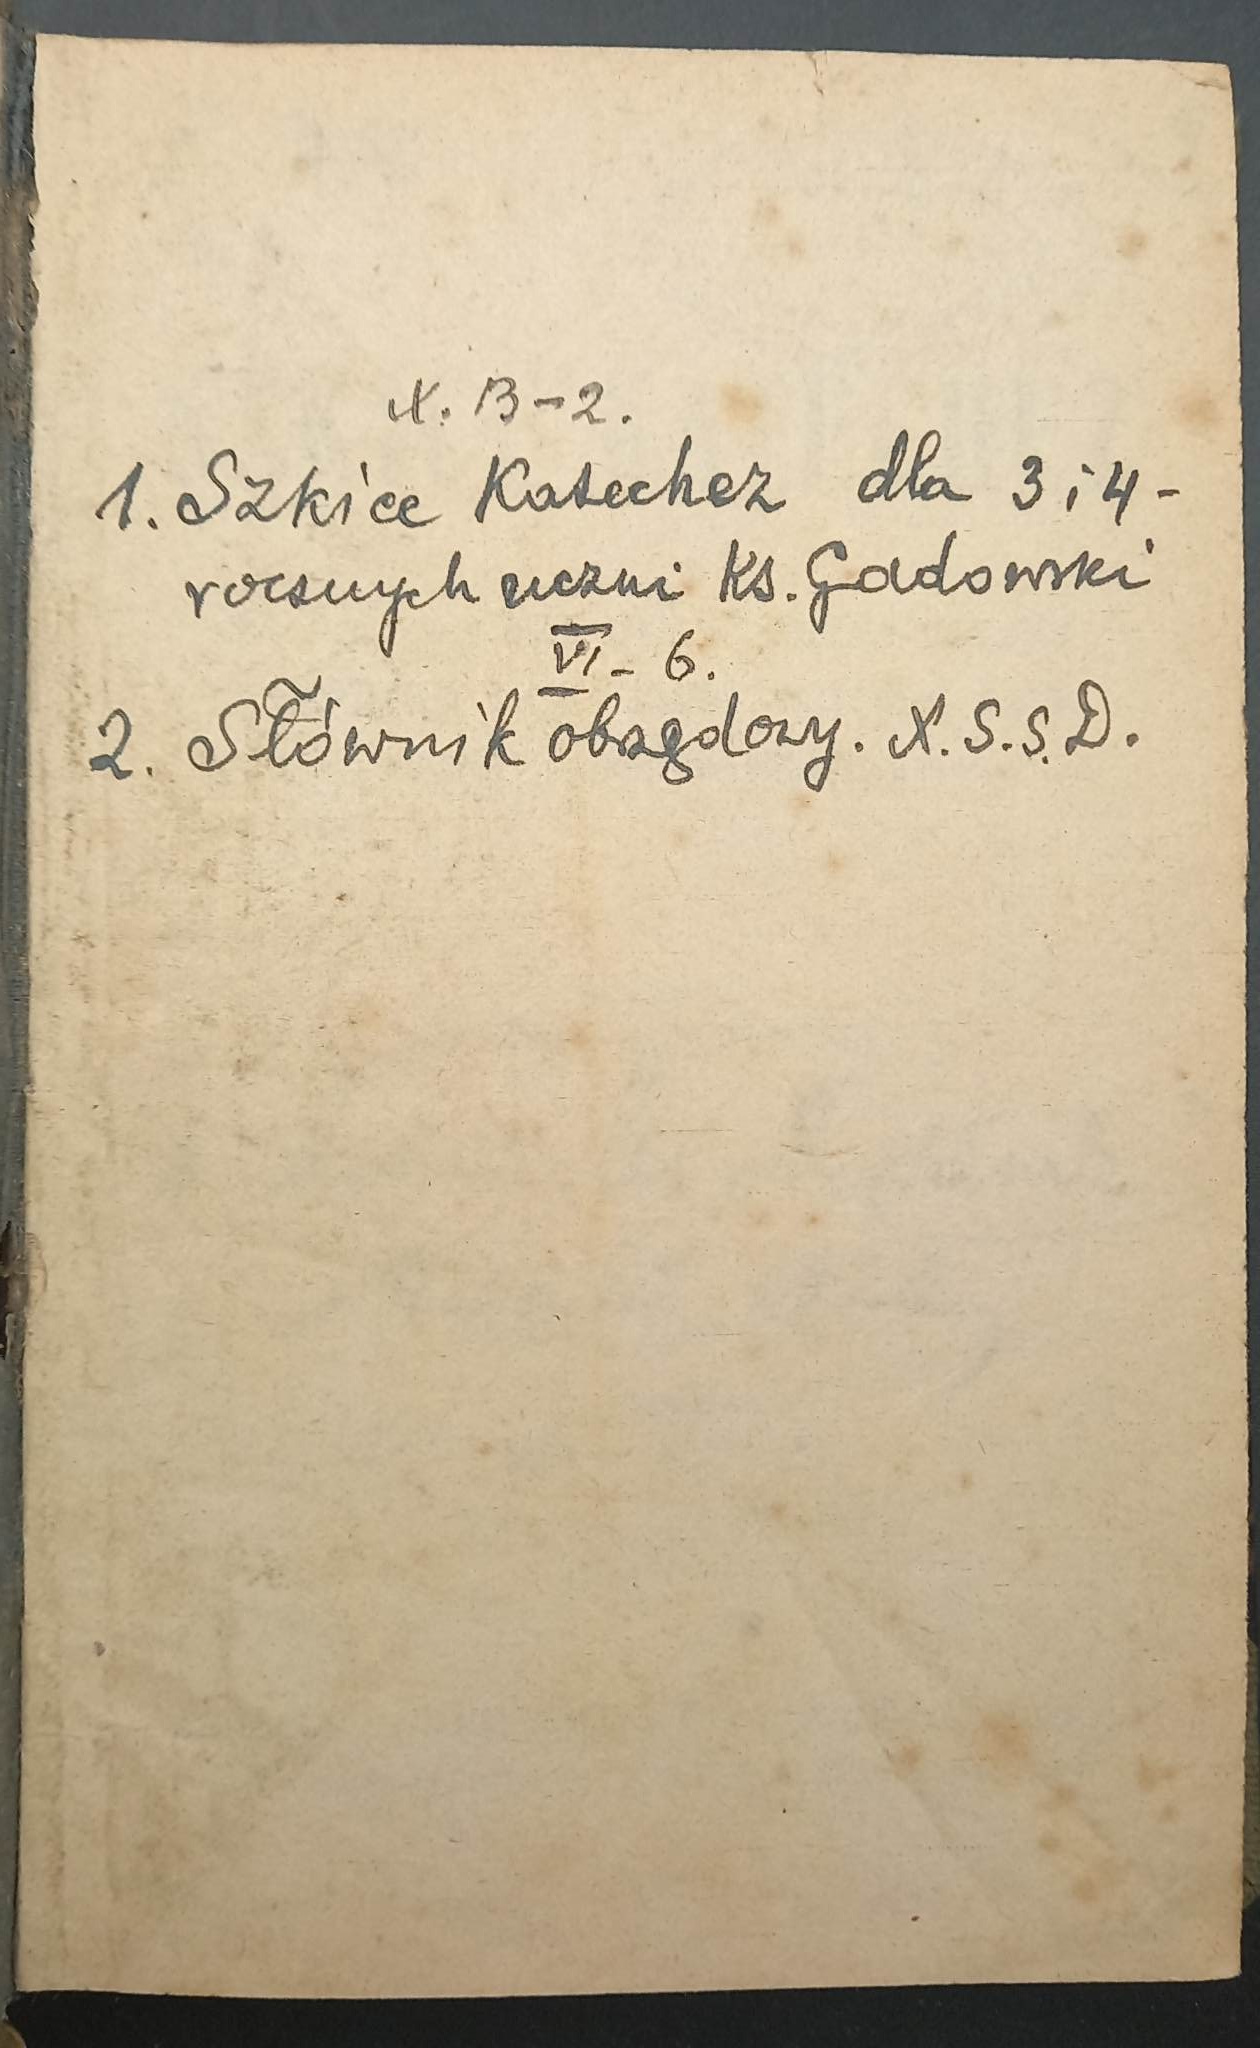 X. B-2.
1. Szkice Katechez dla 3 i 4-
rocznych uczni Ks. Gadowski
VI - 6.
2. Słównik obrzędowy. X. S. S. D.